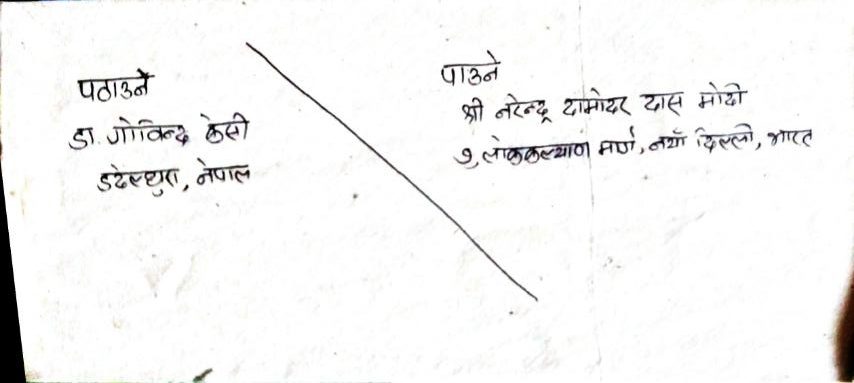 पठाउने
डा. गोविन्द केसी
डडेल्धुरा, नेपाल
पाउने
श्री नरेन्द्र दामोदर दास मोदी
७, लोककल्याण मार्ग, नयाँ दिल्ली, भारत